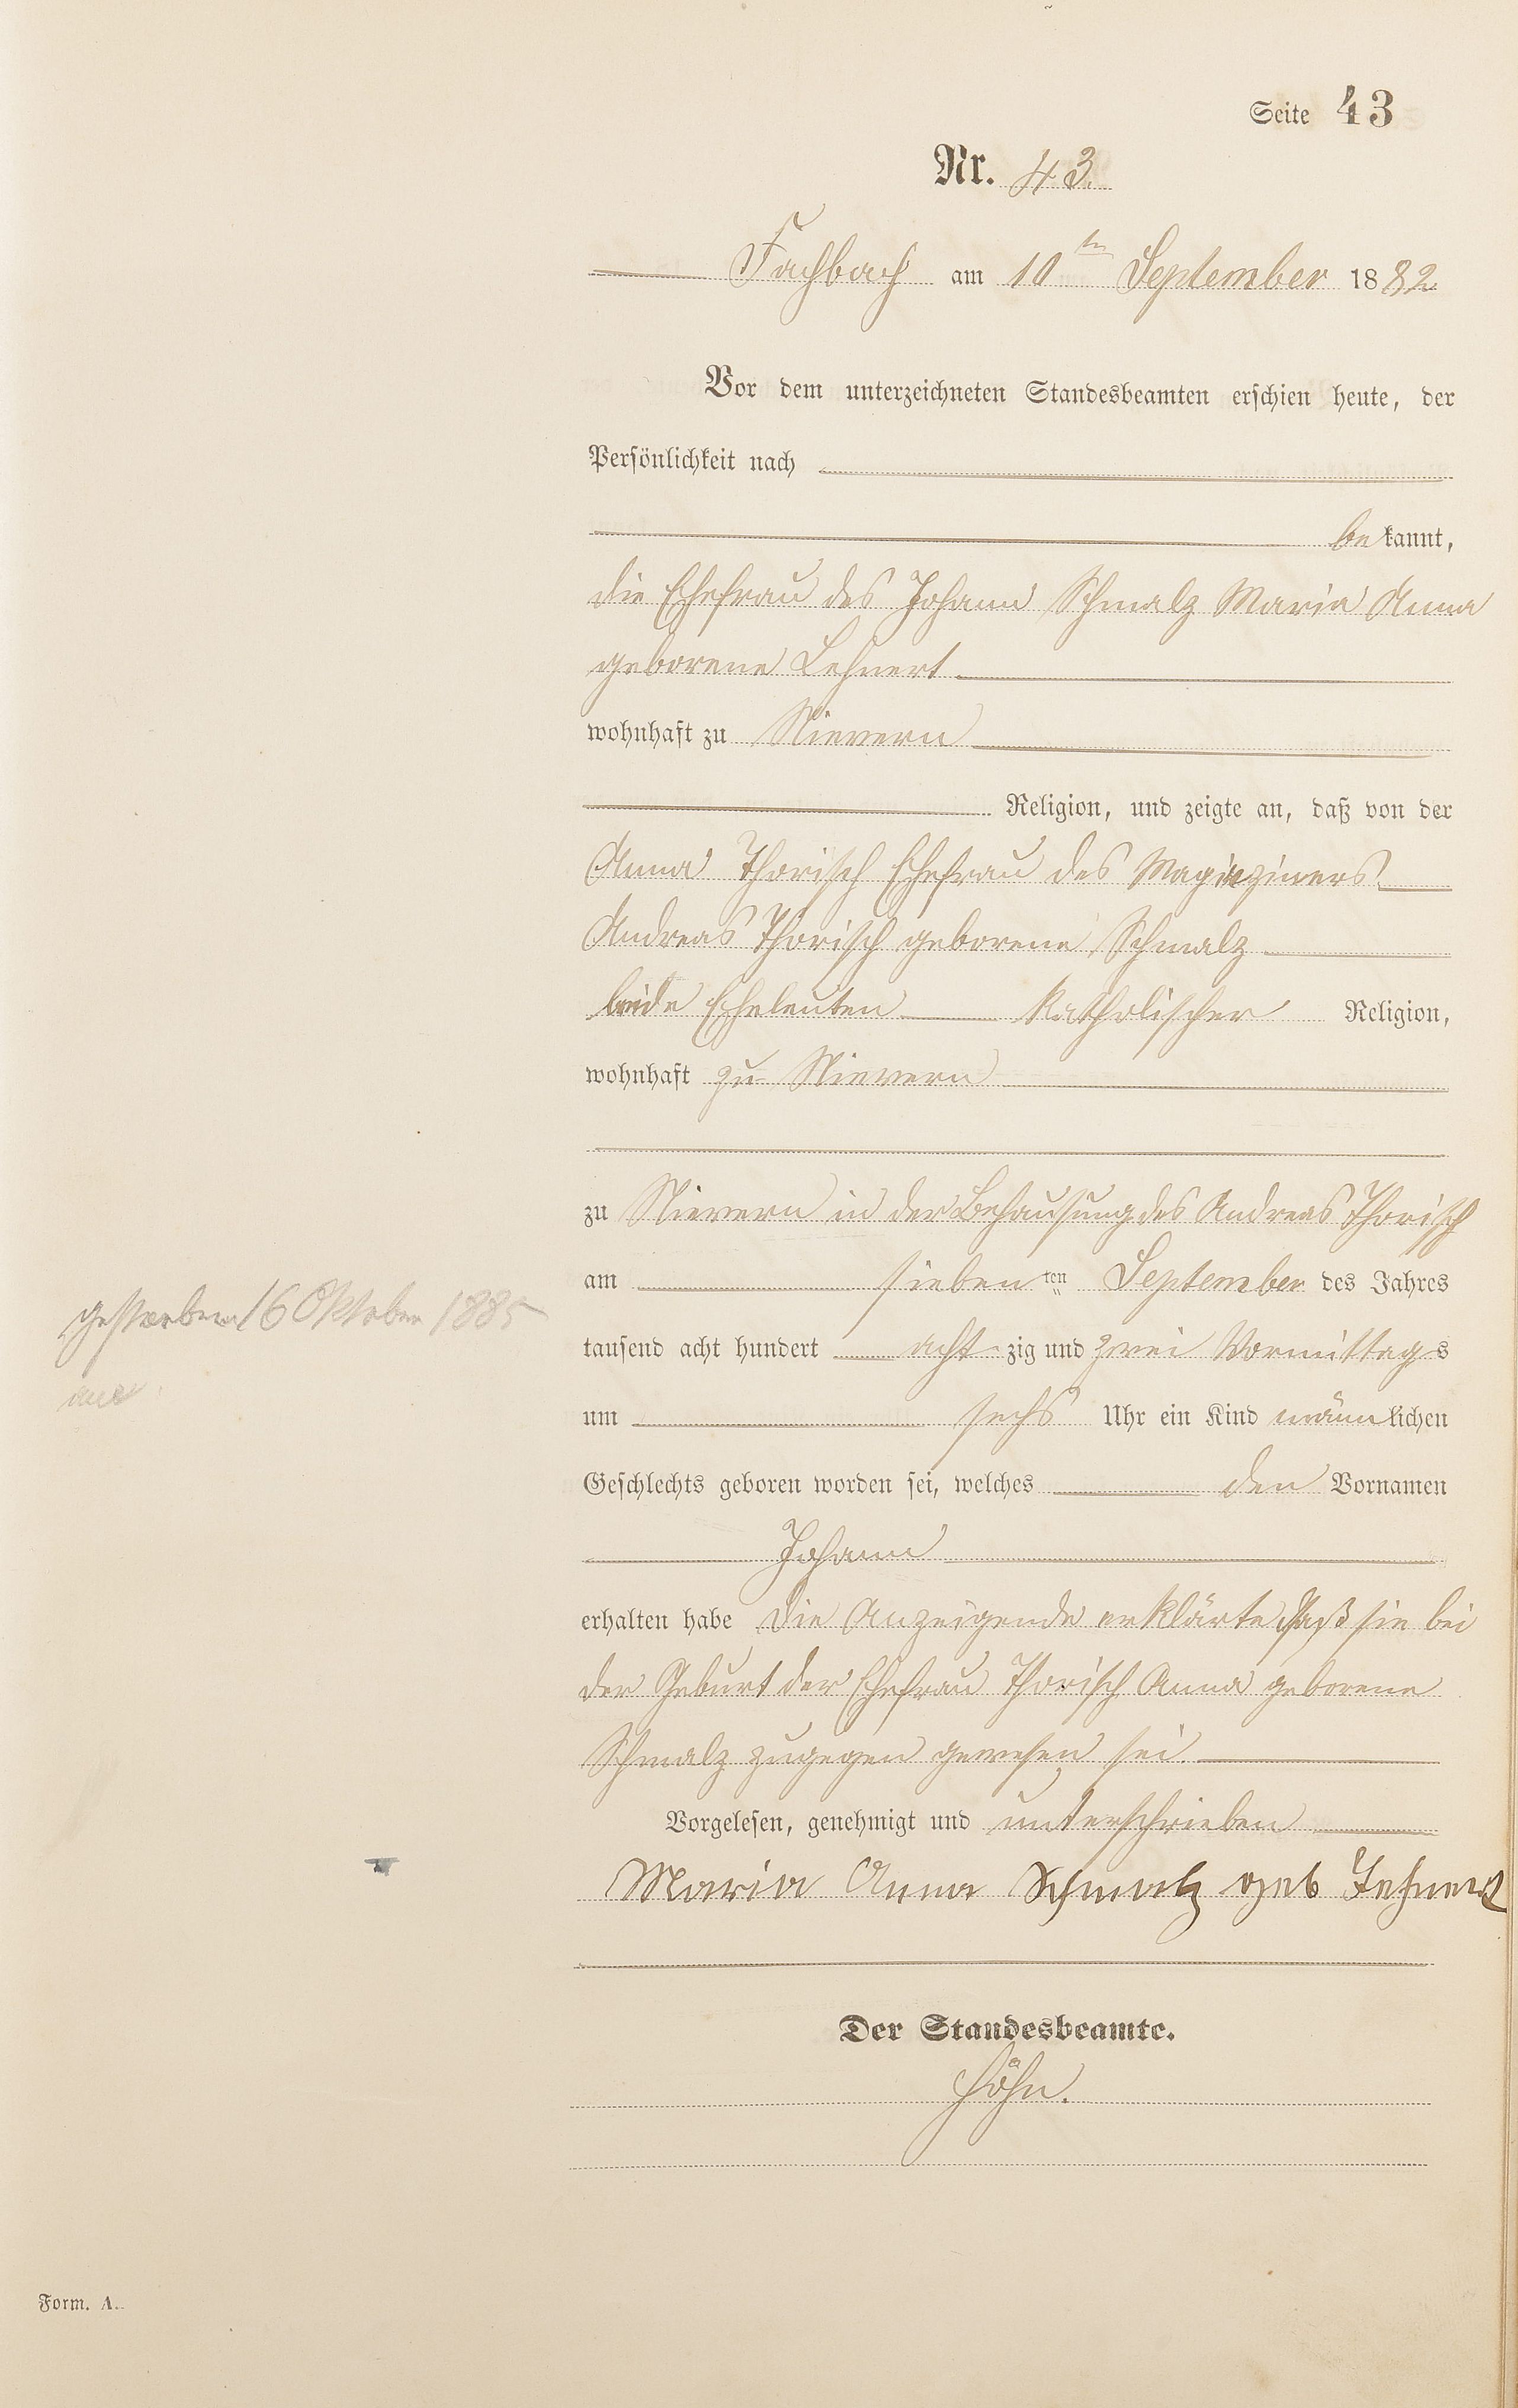 Seite 43
Nr. 43.
Fachbach am 10ten September 1882.
Vor dem unterzeichneten Standesbeamten erschien heute, der
Persönlichkeit nach
bekannt,
die Ehefrau des Johann Schmalz Maria Anna
geborene Lehnert
wohnhaft zu Nievern
Religion, und zeigte an, daß von der
Anna Thorisch Ehefrau des Magaziners
Andreas Thorisch geborene Schmalz
beide Eheleuten katholischer Religion,
wohnhaft zu Nievern
zu Nievern in der Behausung des Andreas Thorisch
am siebenten September des Jahres
tausend acht hundert achtzig und zwei Vormittags
um sechs Uhr ein Kind männlichen
Geschlechts geboren worden sei, welches den Vornamen
Johann
erhalten habe Die Anzeigende erklärte, daß sie bei
der Geburt der Ehefrau Thorisch Anna geborene
Schmalz zugegen gewesen sei.
Vorgelesen, genehmigt und unterschrieben
Maria Anna Schmalz geb Lehnert
Der Standesbeamte.
Höhn.
gestorben 16 Oktober 1885
Form. A.